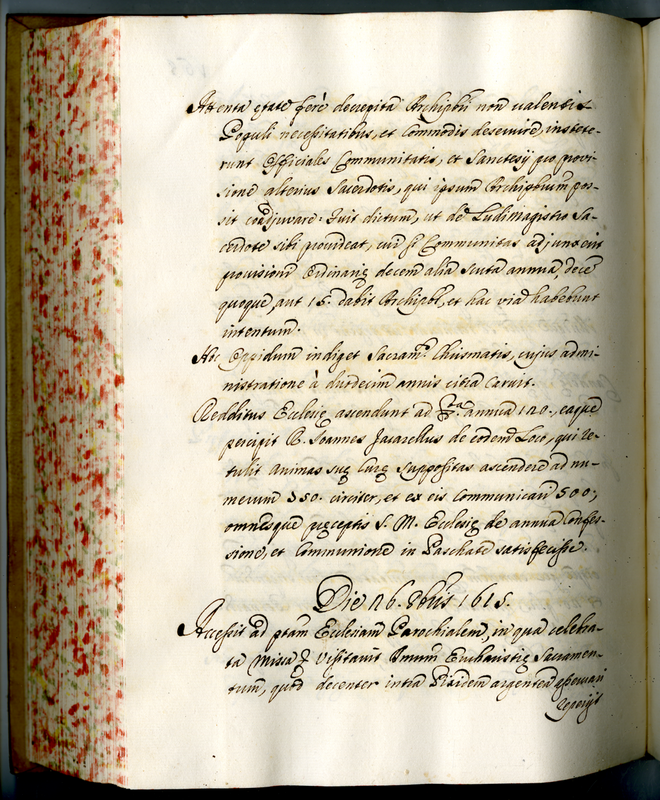 Attenta etate ferè decrepita Archipbri non valentis
Populi necessitatibus, et commodis deservire, instite-
runt Officiales Communitatis, et Sanctesij pro provi-
sione alterius Sacerdotis, qui ipsum Archipbrum pos-
sit coadjuvare. Fuit dictum, ut de Ludimagistro Sa-
cerdote sibi provideat, cui si Communitas adjunxerit
provisioni ordinariȩ decem alia scuta annua, decē
quoque, aut 15. dabit Archipbr, et hac via habebunt
intentum.
Hoc Oppidum indiget Sacram.ᵗᵒ Chrismatis, cujus admi-
nistratione à duodecim annis citra caruit.
Redditus Ecclesiȩ ascendunt ad annua 120., eaque
percipit D. Joannes Jacarellus de eodem Loco, qui re-
tulit animas suȩ curȩ suppositas ascendere ad nu-
merum 850. circiter, et ex eis communicari 500,
omnesque preceptis S. M. Ecclesiȩ de annua Confes-
sione, et Communione in Paschate satisfecisse.
Die 26. 8bris 1615.
Accessit ad ptam Ecclesiam Parochialem, in qua celebra-
ta Missa Visitavit Smum Eucharistiȩ Sacramen-
tum, quod decenter intra Pixidem argenteā asservari
reperijt